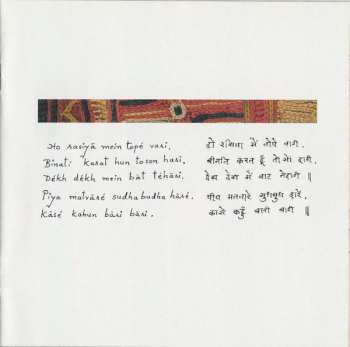 Ho rasiyā mein topé vari,
Binati karat hun toson hari,
Dékh dékh mein bāt téhāri.
Piya matvāré sudhabudha hāré,
Kāsé kahun bāri bāri.
हो रसिया में तोपे वारी.
बीनति करत हूँ तोसो हारी,
देख देख में बाट तेहारी ॥
पीया मतवारे सुधबुध हारे,
कासे कहुँ बारी बारी ॥